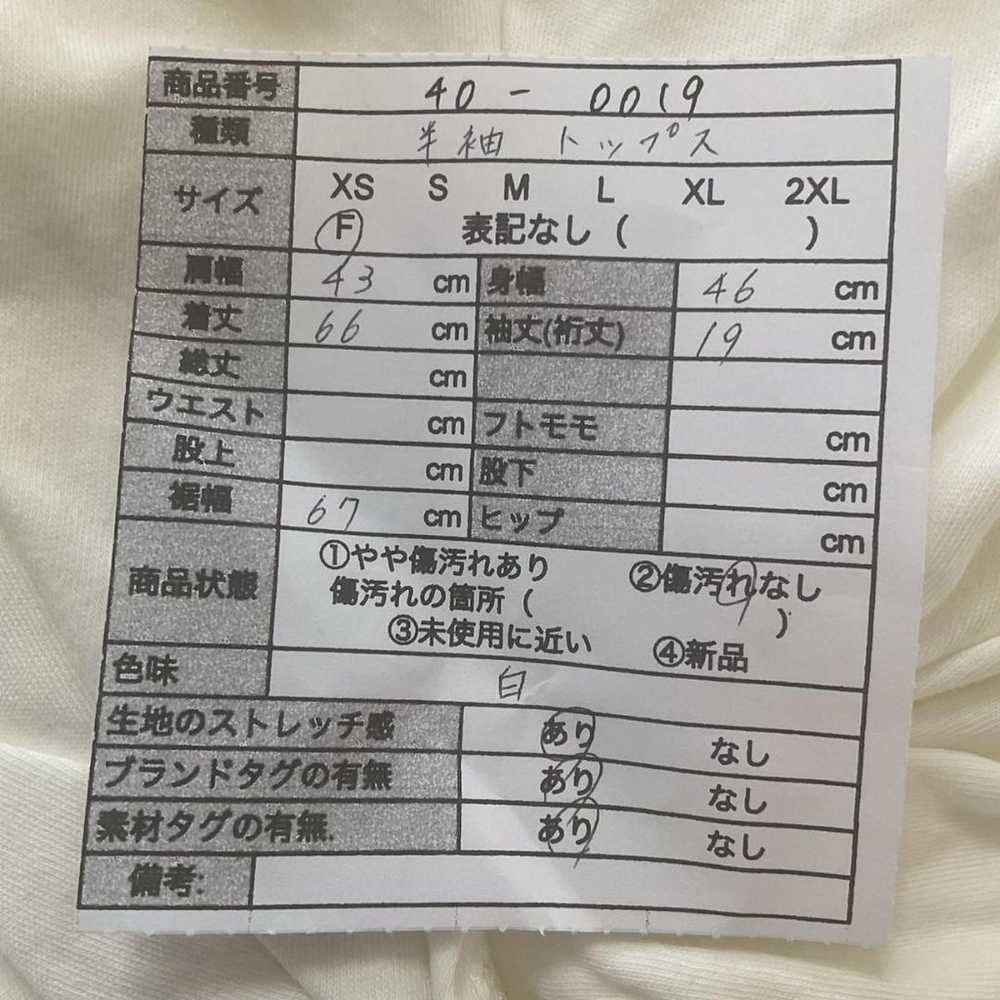 商品番号 40 - 0019
種類 半袖 トップス
サイズ XS S M L XL 2XL
F 表記なし ( )
肩幅 43 cm 身幅 46 cm
着丈 66 cm 袖丈(裄丈) 19 cm
総丈 cm
ウエスト cm フトモモ cm
股上 cm 股下 cm
裾幅 67 cm ヒップ cm
商品状態 ①やや傷汚れあり ②傷汚れなし
傷汚れの箇所 ( )
③未使用に近い ④新品
色味 白
生地のストレッチ感 あり なし
ブランドタグの有無 あり なし
素材タグの有無. あり なし
備考: